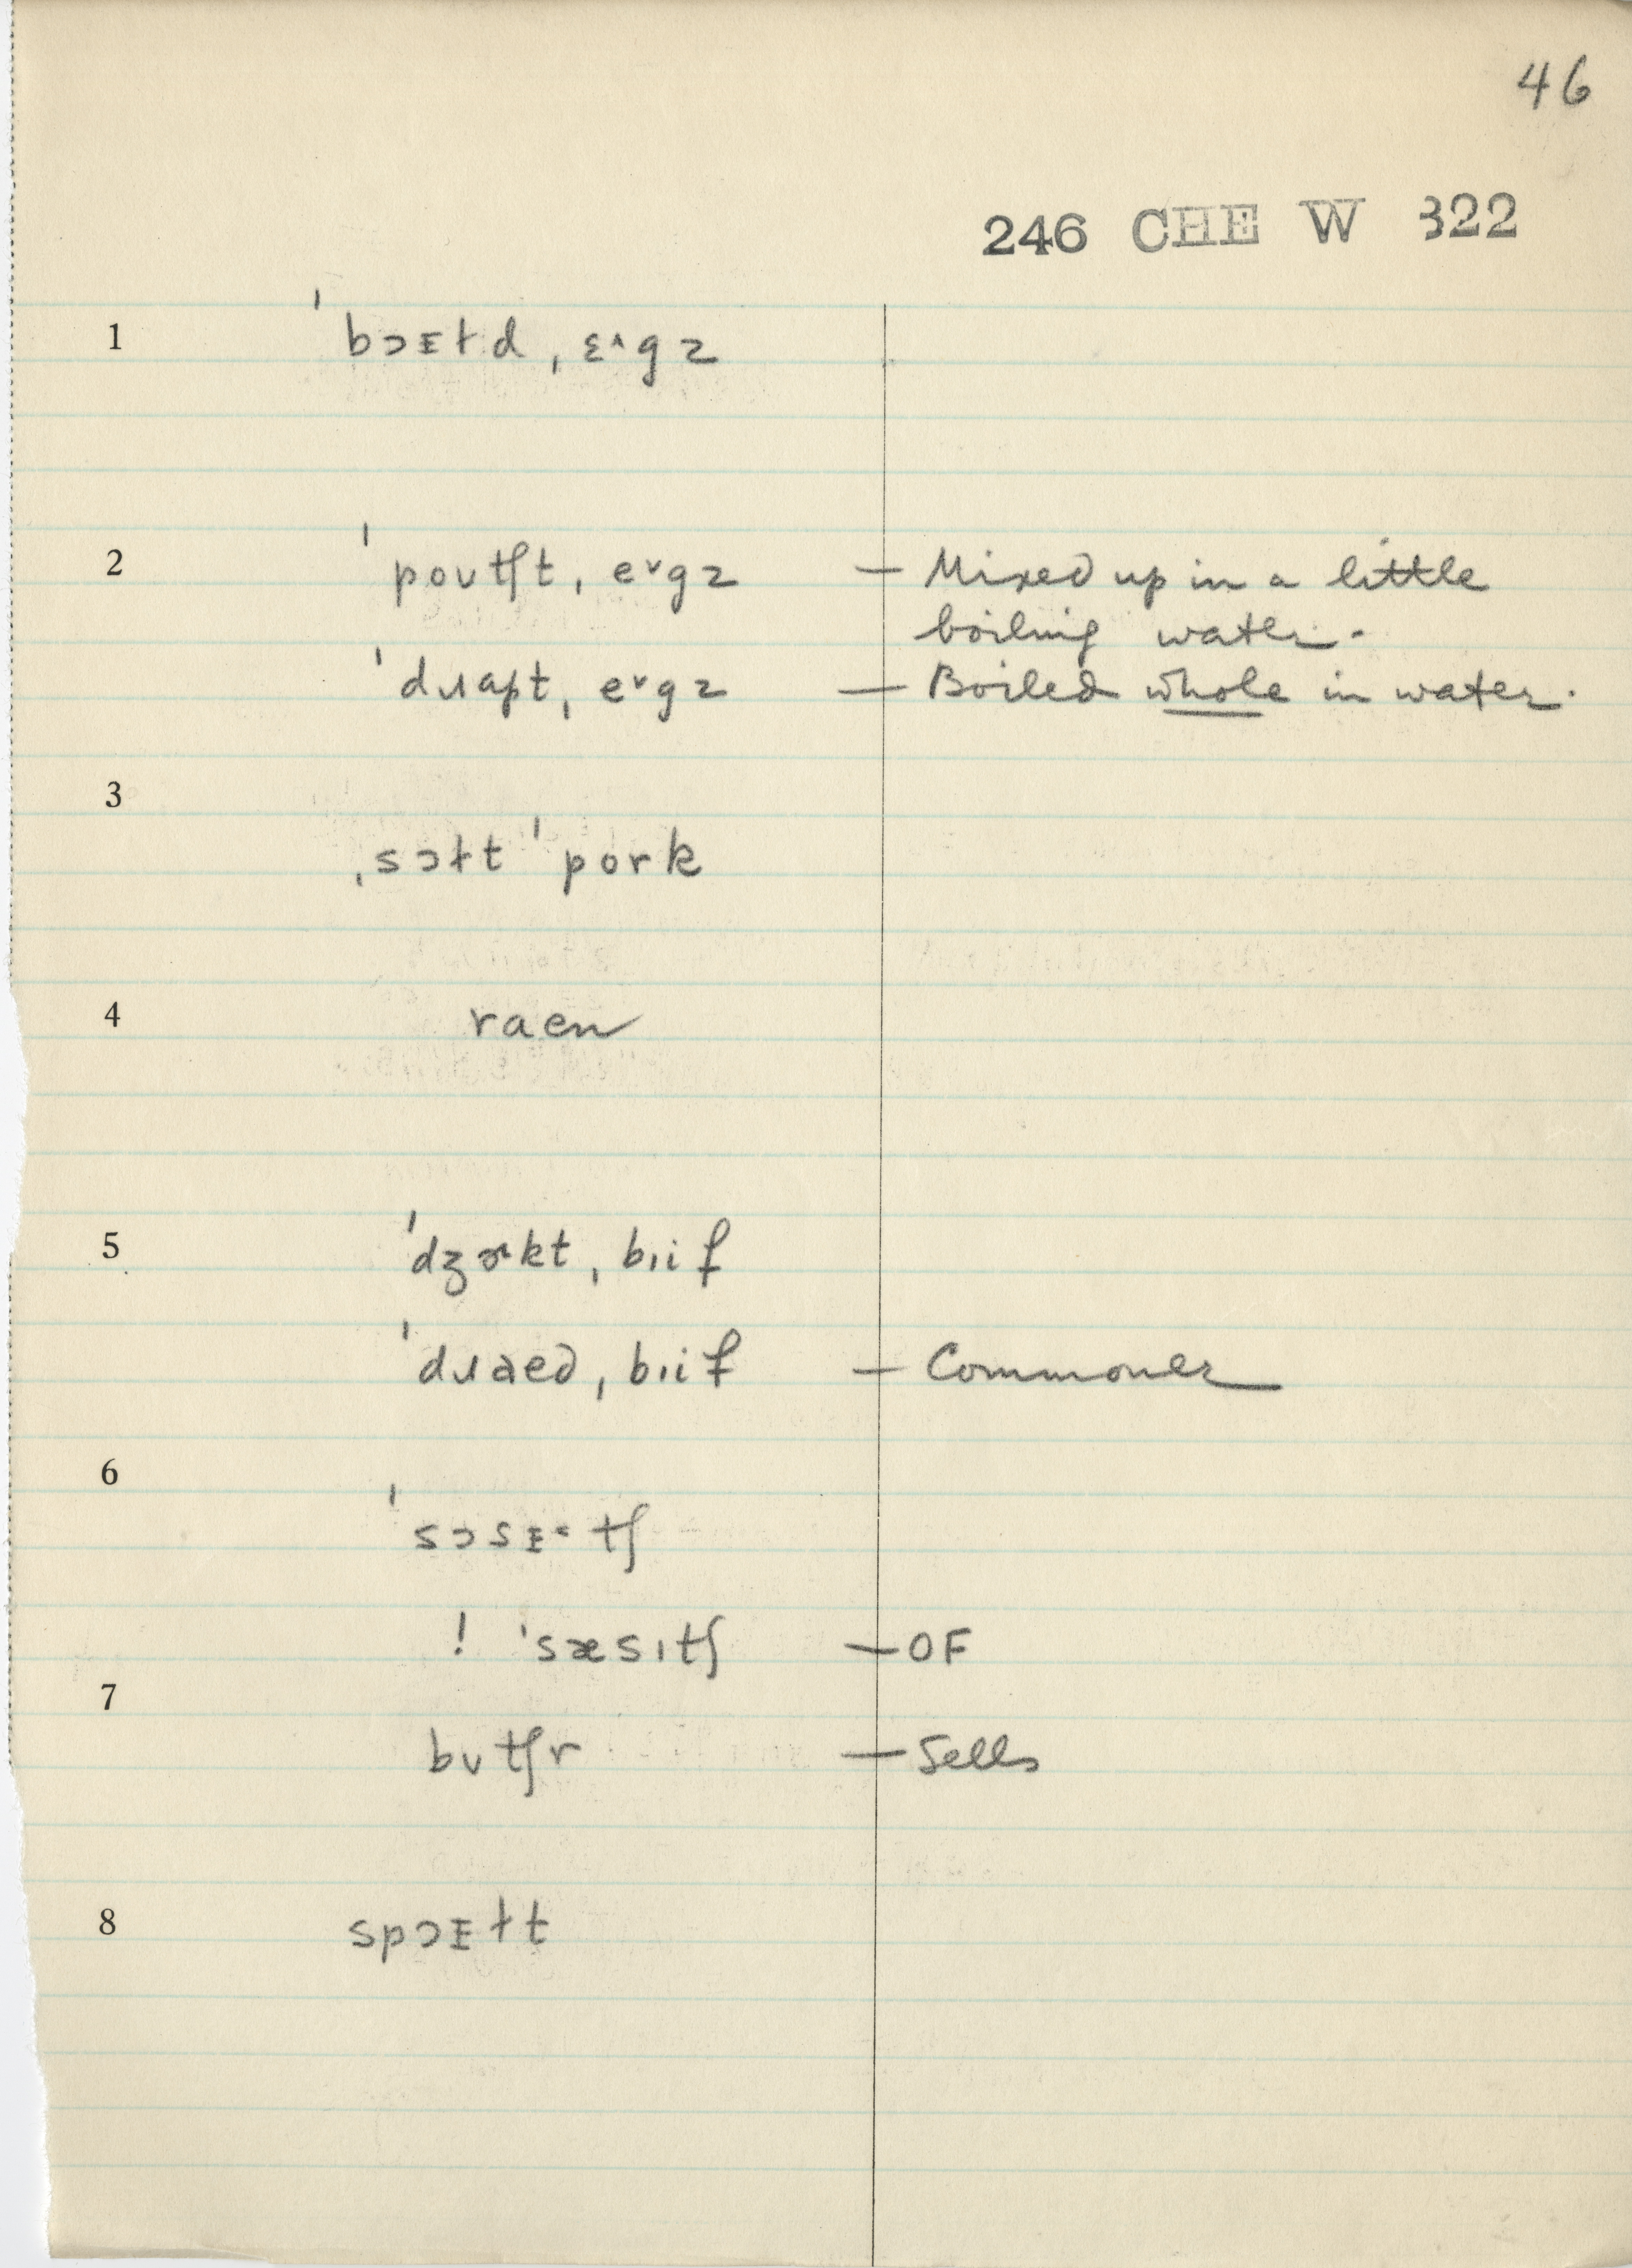 46
246 CHE W 322
1 ˈbɔᴇɫd ˌɛ^gz
2 ˈpoʊtʃt ˌeˇgz — Mixed up in a little
boiling water.
ˈdɹapt ˌeˇgz — Boiled whole in water.
3
ˌsɔɫt ˈpork
4 raen
5 ˈdʒɚkt ˌbɪif
ˈdɹaed ˌbɪif — Commoner
6
ˈsɔsᴇ˂tʃ
! ˈsæsɪtʃ — OF
7
bʊtʃr — Sells
8 spɔᴇɫt